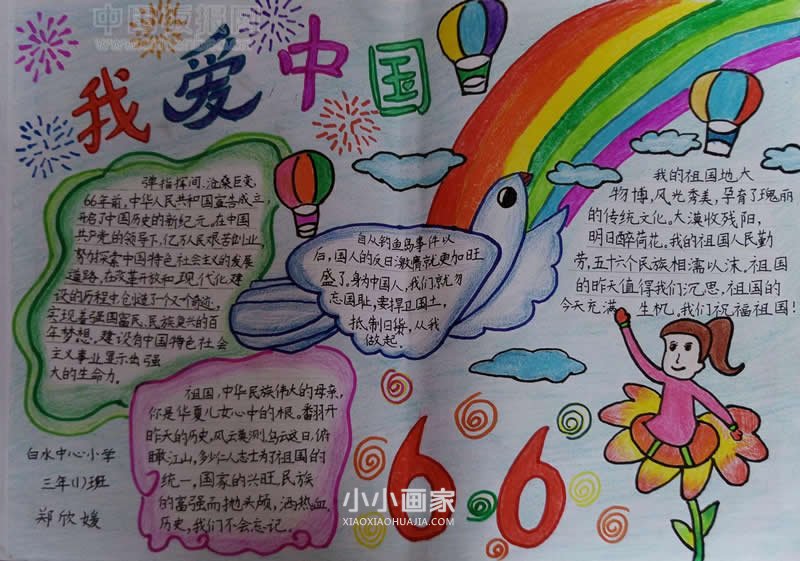 中国板报网
我爱中国
弹指挥间,沧桑巨变,
66年前,中华人民共和国宣告成立,
开启了中国历史的新纪元。在中国
共产党的领导下,亿万人民艰苦创业,
努力探索中国特色社会主义的发展
道路,在改革开放和现代化建
设的历程中创造了一个又一个奇迹,
实现着强国富民、民族复兴的百
年梦想。建设有中国特色社会
主义事业显示出强
大的生命力。
自从钓鱼岛事件以
后,国人的反日激情就更加旺
盛了。身为中国人,我们就勿
忘国耻,要捍卫国土,
抵制日货,从我
做起。
我的祖国地大
物博,风光秀美,孕育了瑰丽
的传统文化。大漠收残阳,
明日醉荷花。我的祖国人民勤
劳,五十六个民族相濡以沫。祖国
的昨天值得我们沉思,祖国的
今天充满生机,我们祝福祖国!
祖国,中华民族伟大的母亲,
你是华夏儿女心中的根。翻开
昨天的历史,风云莫测,乌云这日,俯
瞰江山,多少仁人志士为了祖国的
统一,国家的兴旺,民族
的富强而抛头颅,洒热血,
历史,我们不会忘记。
白水中心小学
三年(1)班
郑欣媛
66
小小画家
XIAOXIAOHUAJIA.COM